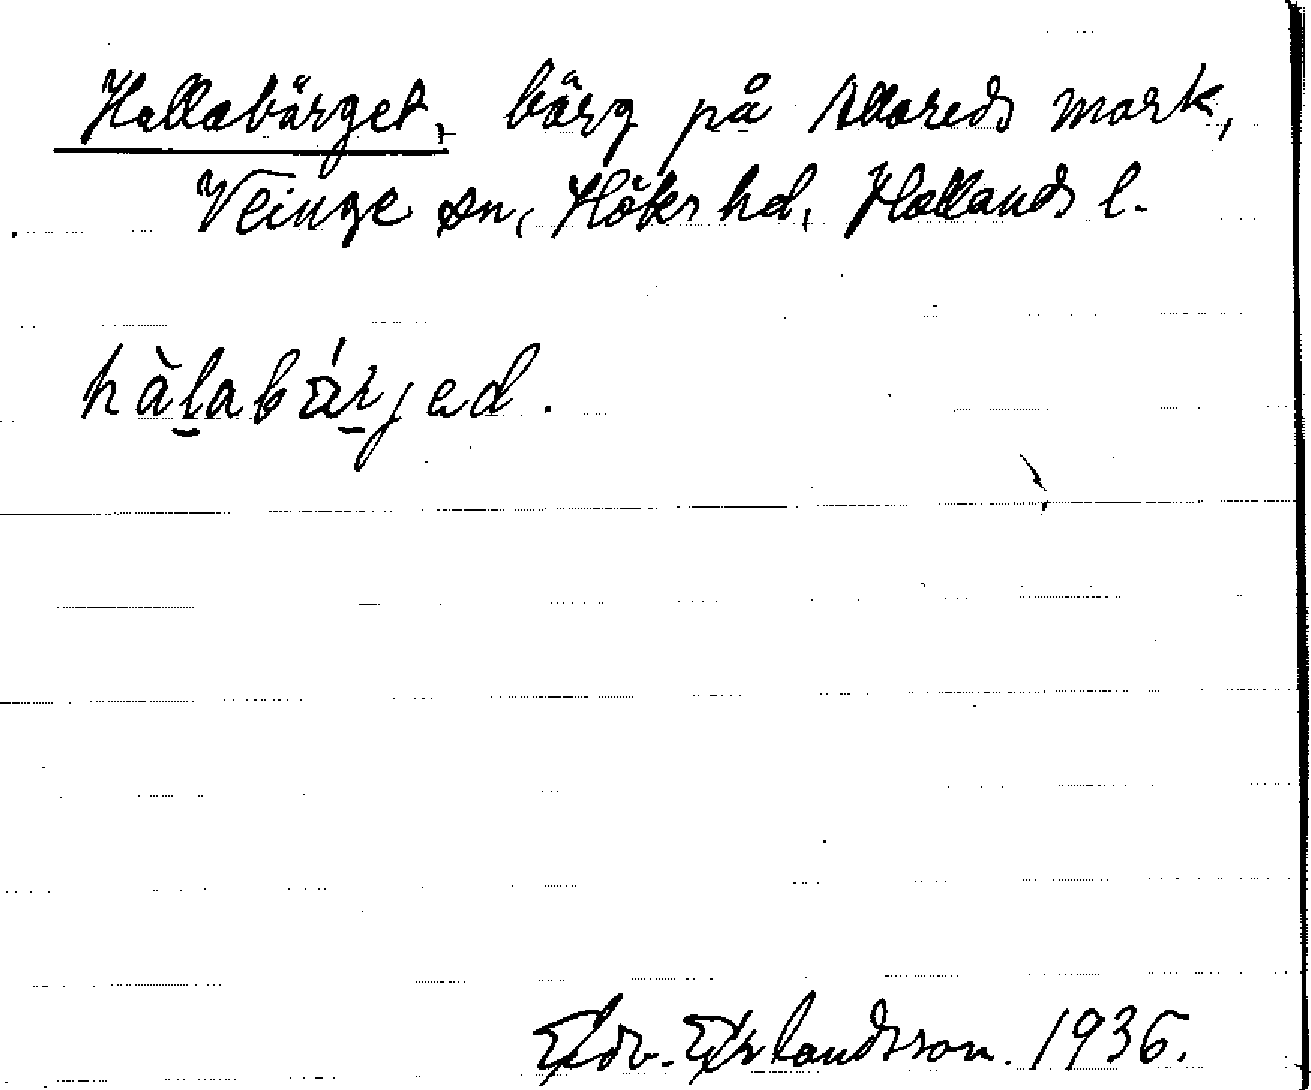 Hallabärget, bärg på Allareds mark,
Veinge sn, Höks hd, Hallands l.
hàl̠abár̠jed.
Edv. Erlandsson. 1936.